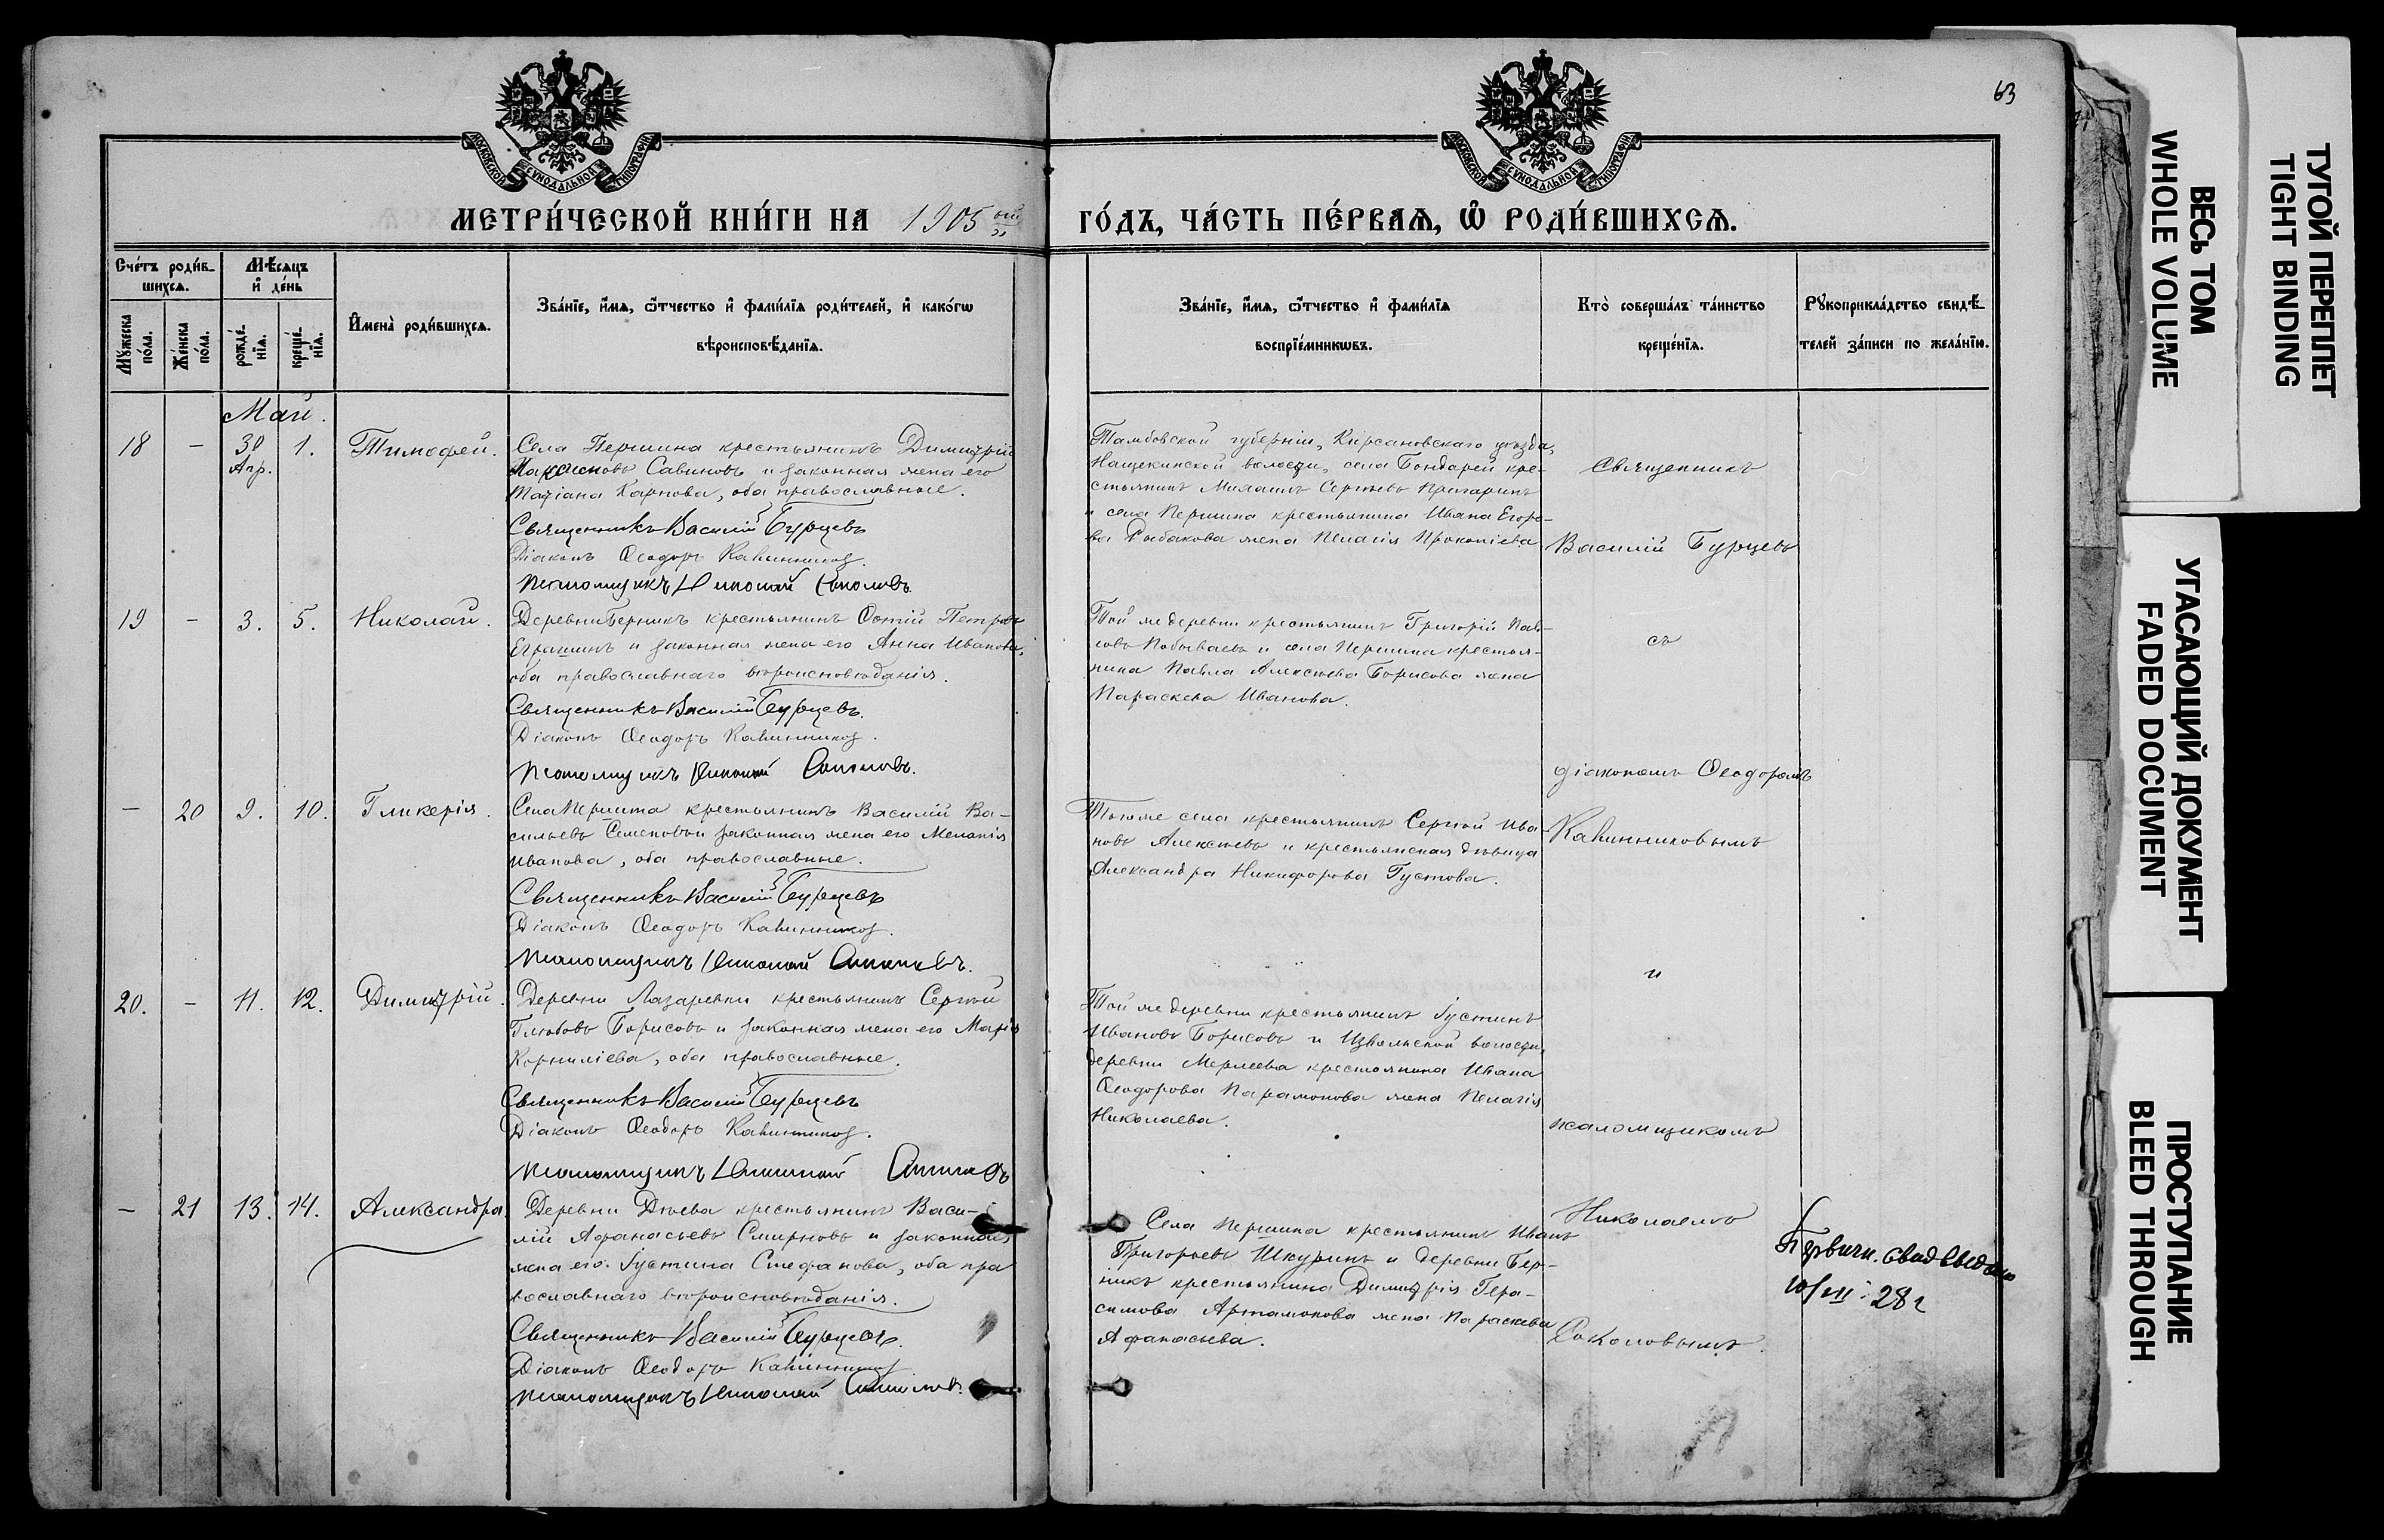 63
МОСКОВСКОЙ СѴНОДАЛЬНОЙ ТИПОГРАФІИ
МОСКОВСКОЙ СѴНОДАЛЬНОЙ ТИПОГРАФІИ
МЕТРИ́ЧЕСКОЙ КНИ́ГИ НА 1905 ый
ГО́ДЪ, ЧА́СТЬ ПЕ́РВАѦ, Ѡ҆ РОДИ́ВШИХСѦ.
Сче́тъ роди́в-
шихсѧ.
Мѣ́сѧцъ
и҆ де́нь
Мꙋ́жеска
по́ла.
Же́нска
по́ла.
рожде́-
нїѧ.
креще́-
нїѧ.
И҆мена̀ роди́вшихсѧ.
Зва́нїе, и҆́мѧ, ѻ҆́тчество и҆ фамѵ́лїѧ роди́телей, и҆ како́гѡ
вѣроисповѣ́данїѧ.
Зва́нїе, и҆́мѧ, ѻ҆́тчество и҆ фамѵ́лїѧ
воспрїе́мникѡвъ.
Кто̀ соверша́лъ та́инство
креще́нїѧ.
Рꙋкоприкла́дство свидѣ́-
телей за́писи по жела́нїю.
Май.
18 - 30 Апр. 1. Тимофей.
Села Першина крестьянинъ Димитрій
Савиновъ и законная жена его
Татіана Карпова, оба православные.
Священникъ Василій Бурцевъ
Діаконъ Ѳеодоръ Кавинниковъ.
Псаломщикъ Николай Соколовъ.
Тамбовской губерніи, Кирсановскаго уѣзда,
Нащекинской волости, села Бондарей кре-
стьянинъ Михаилъ Сергѣевъ Пригаринъ
и села Першина крестьянина Ивана Егоро-
ва Рыбакова жена Пелагія Прокопіева.
Священникъ
Василій Бурцевъ
19 - 3. 5. Николай.
Деревни Берникъ крестьянинъ Фотій Петровъ
и законная жена его Анна Иванова,
оба православнаго вѣроисповѣданія.
Священникъ Василій Бурцевъ.
Діаконъ Ѳеодоръ Кавинниковъ.
Псаломщикъ Николай Соколовъ.
Той же деревни крестьянинъ Григорій Пав-
ловъ Побываевъ и села Першина крестья-
нина Павла Алексѣева Борисова жена
Параскева Иванова.
съ
діакономъ Ѳеодоромъ
- 20 9. 10. Гликерія.
Села Першина крестьянинъ Василій Ва-
сильевъ Семеновъ и законная жена его Меланія
Иванова, оба православные.
Священникъ Василій Бурцевъ
Діаконъ Ѳеодоръ Кавинниковъ.
Псаломщикъ Николай Соколовъ.
Того же села крестьянинъ Сергѣй Ива-
новъ Алексѣевъ и крестьянская дѣвица
Александра Никифорова Густова.
Кавинниковымъ
и
20. - 11. 12. Димитрій.
Деревни Лазаревки крестьянинъ Сергѣй
Глѣбовъ Борисовъ и законная жена его Марія
Корниліева, оба православные.
Священникъ Василій Бурцевъ
Діаконъ Ѳеодоръ Кавинниковъ.
Псаломщикъ Николай Соколовъ
Той же деревни крестьянинъ Іустинъ
Ивановъ Борисовъ и Извольской волости,
деревни Мерлеева крестьянина Ивана
Ѳеодорова Парамонова жена Пелагія
Николаева.
псаломщикомъ
- 21 13. 14. Александра.
Деревни Дѣева крестьянинъ Васи-
лій Аѳанасьевъ Смирновъ и законная
жена его Іустина Стефанова, оба пра
вославнаго вѣроисповѣданія.
Священникъ Василій Бурцевъ.
Діаконъ Ѳеодоръ Кавинниковъ
Псаломщикъ Николай Соколовъ.
Села Першина крестьянинъ Иванъ
Григорьевъ Шкуринъ и деревни Бер-
никъ крестьянина Димитрія Гера-
симова Артамонова жена Параскева
Аѳанасьева.
Николаемъ
Соколовымъ.
Первичн. свид выдано
10/VII 28 г
ТУГОЙ ПЕРЕПЛЕТ
TIGHT BINDING
ВЕСЬ ТОМ
WHOLE VOLUME
УГАСАЮЩИЙ ДОКУМЕНТ
FADED DOCUMENT
ПРОСТУПАНИЕ
BLEED THROUGH